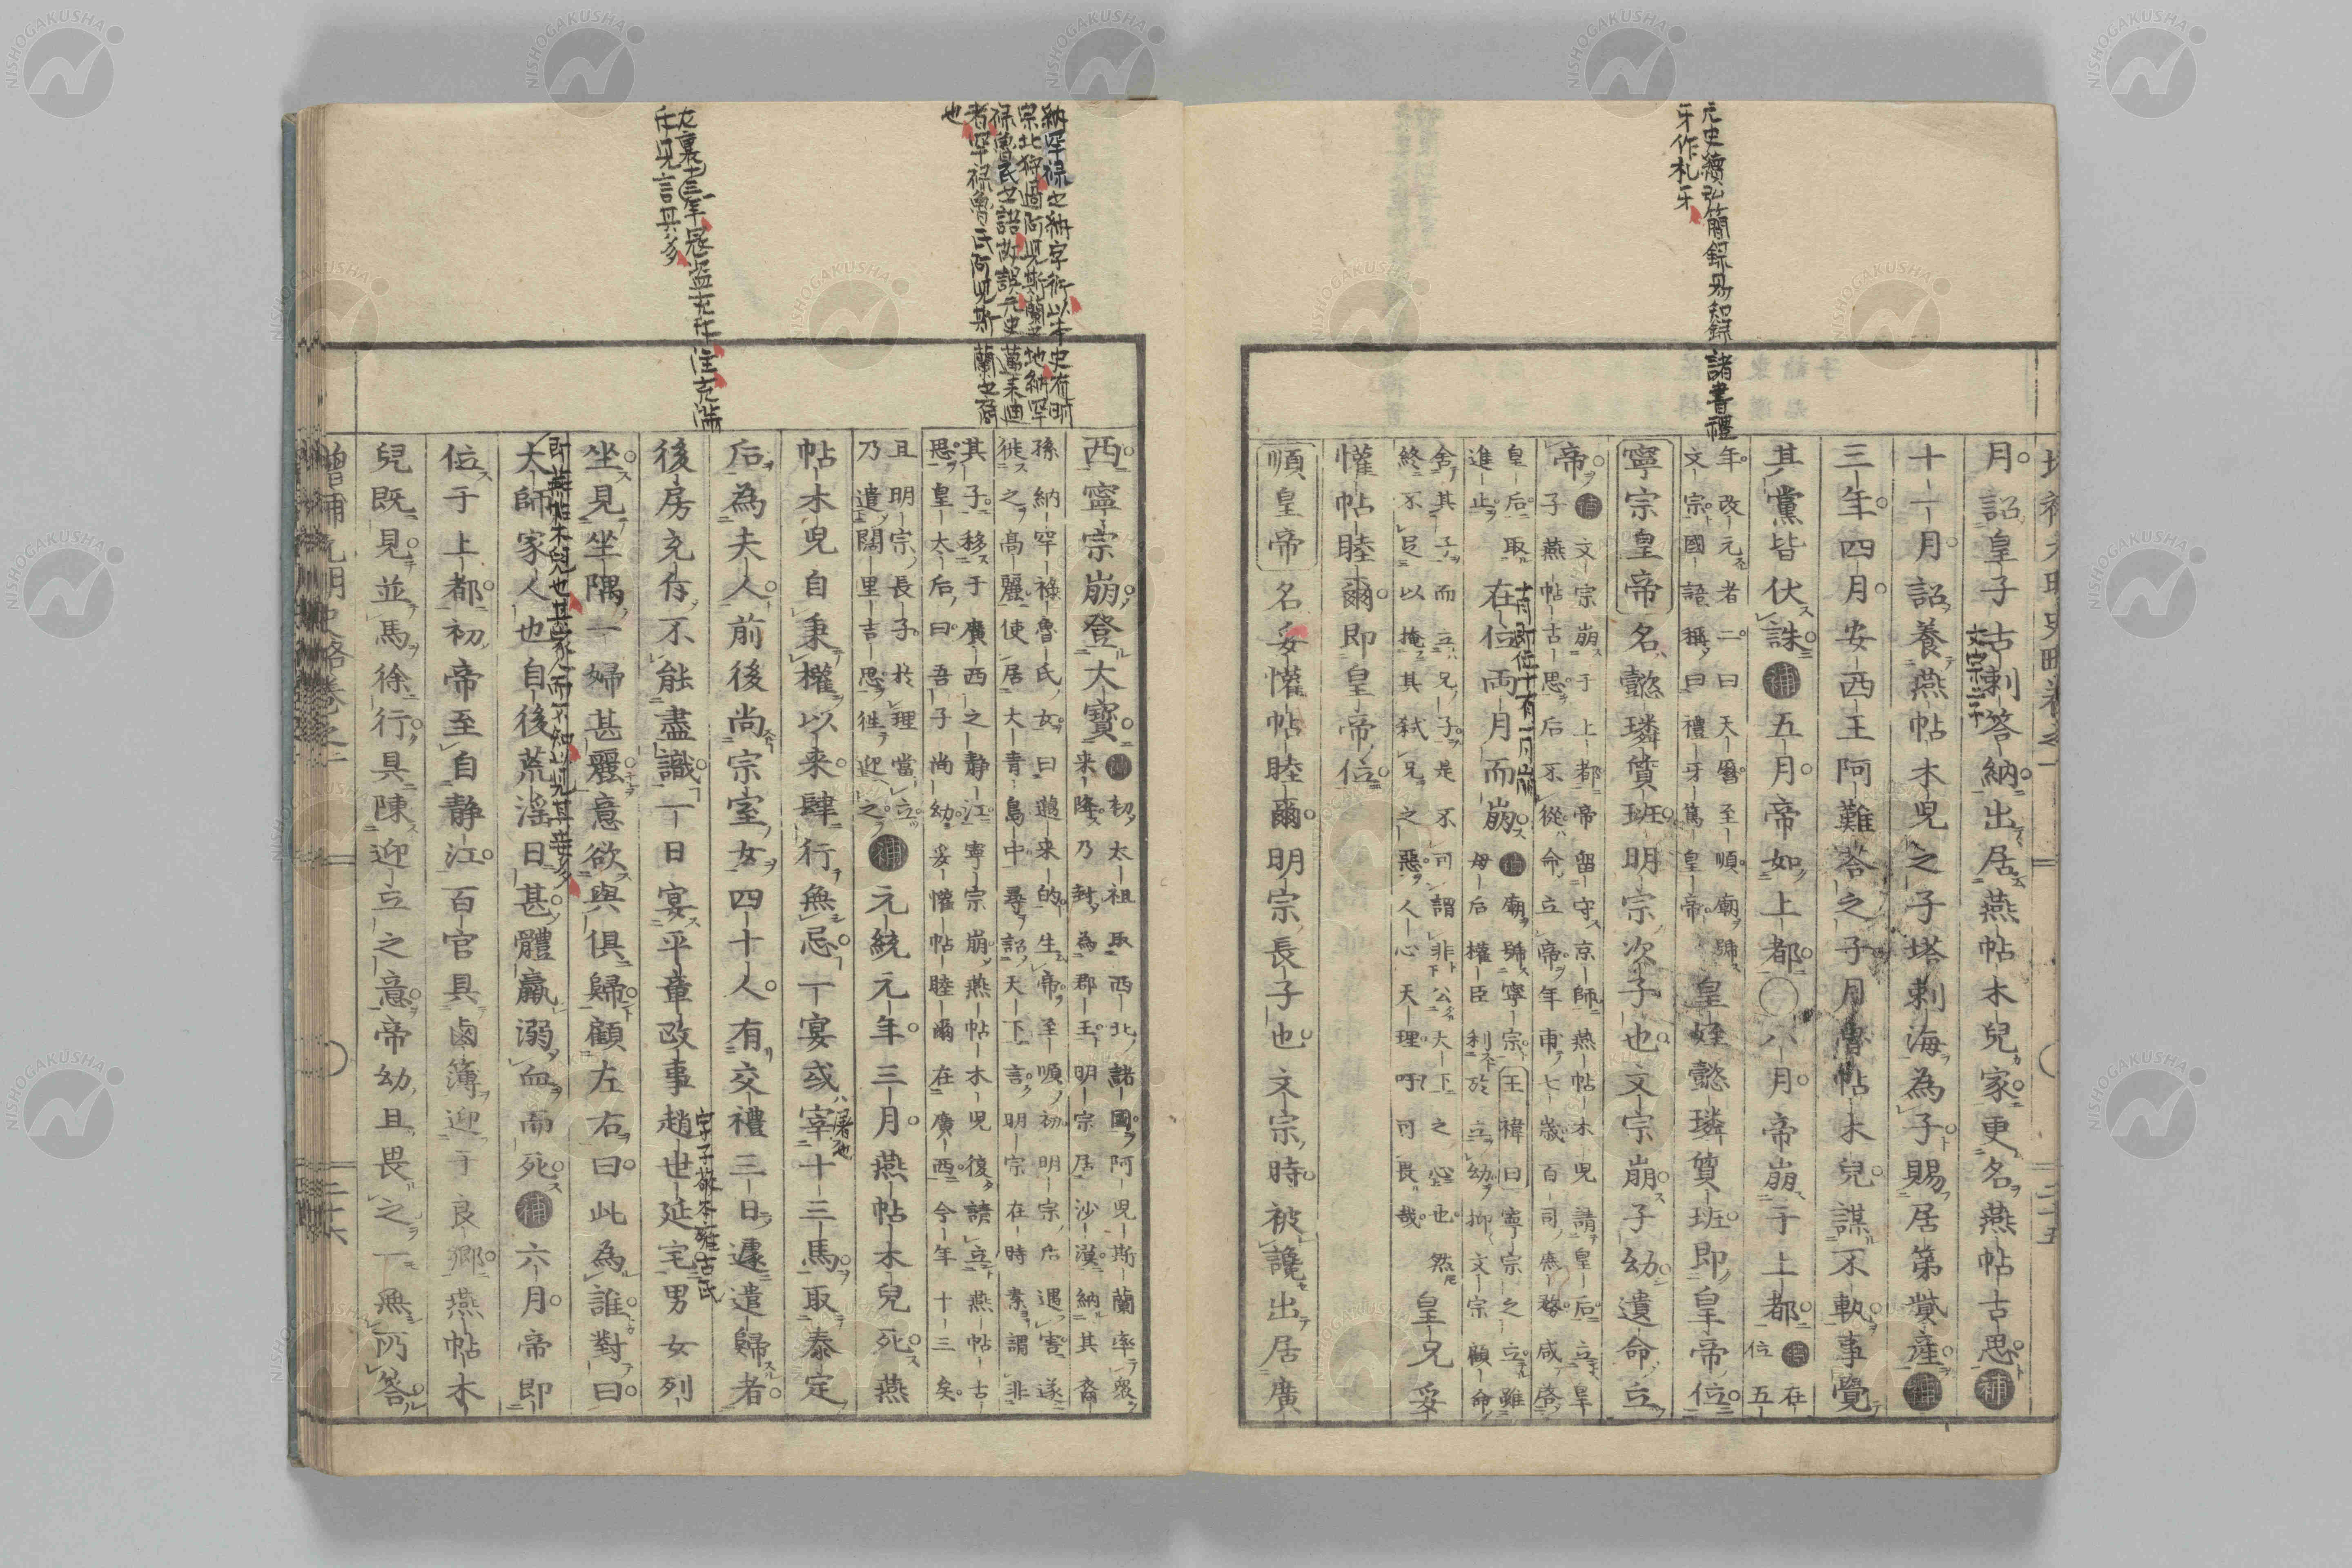 元史續弘簡錄易知錄諸書禮
牙作札牙
月詔皇子古剌答納出居燕帖木兒家更名燕帖古思補
文宗二子
十一月詔養燕帖木兒之子塔剌海為子賜居第貲產補
三年四月安西王阿難荅之子月魯帖木兒謀不軌事覺
其黨皆伏誅補五月帝如上都〇八月帝崩于上都
在位五
年改元者二曰天曆至順廟號
文宗國語稱曰禮牙篤皇帝
皇姪懿璘質班即皇帝位
寧宗皇帝名懿璘質班明宗次子也文宗崩子幼遺命立
帝
文宗崩于上都帝留守京師燕帖木兒請皇后立皇
子燕帖古思后不從命立帝帝年甫七歲百司庶務咸啓
皇后取
進止
在位兩月而崩
十月即位十有一月崩
廟號寧宗王禕曰寧宗之立雖
母后權臣利於立幼抑文宗顧命
舍其子而立兄子是不可謂非公天下之心也然
終不足以掩其弒兄之惡人心天理吁可畏哉
皇兄妥
懽帖睦爾即皇帝位
順皇帝名妥懽帖睦爾明宗長子也文宗時被讒出居廣
納罕祿之納字衍以本史有明
宗北狩過阿兒斯蘭之地納罕
祿魯氏之語故誤元史邁来迪
者罕祿魯氏阿兒斯蘭之裔
也
西寧宗崩登大寶
初太祖取西北諸國阿兒斯蘭率衆
来降乃封為郡王明宗居沙漠納其裔
孫納罕祿魯氏女曰邁来的生帝至順初明宗后遇害遂
徙之高麗使居大青島中尋詔天下言明宗在時素謂非
其子移于廣西之靜江寧宗崩燕帖木兒後請立燕帖古
思皇太后曰吾子尚幼妥懽帖睦爾在廣西今年十三矣
且明宗長子於理當立
乃遣闊里吉思徃迎之
補元統元年三月燕帖木兒死燕
帖木兒自秉權以来肆行無忌一宴或宰十三馬取泰定
屠也
后為夫人前後尚宗室女四十人有交禮三日遽遣歸者
後房充斥不能盡識一日宴平章政事趙世延宅男女列
字子敬本雍古氏
左襄三十一年寇盜充斥注充滿
斥見言其多
坐見坐隅一婦甚麗意欲與俱歸顧左右曰此為誰對曰
即燕帖木兒也其家人而不知以見其妾多
太師家人也自後荒淫日甚體羸溺血而死補六月帝即
位于上都初帝至自靜江百官具鹵簿迎于良鄉燕帖木
兒既見並馬徐行具陳迎立之意帝幼且畏之一無所答